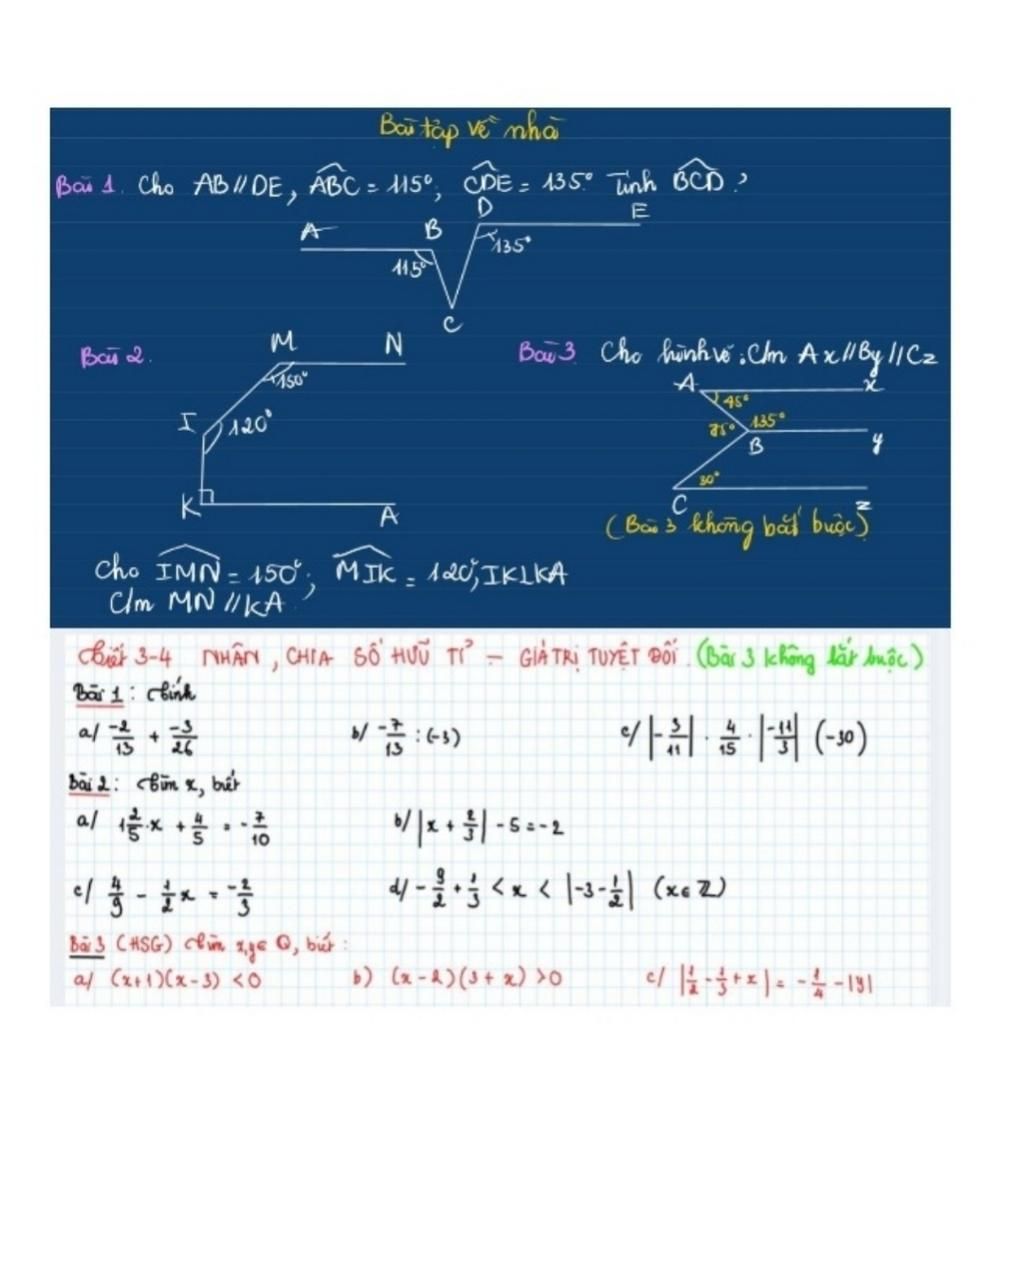 Bài tập về nhà
Bài 1. Cho AB // DE, ABC = 115°, CDE = 135°. Tính BCD ?
A B D E
115° 135°
C
Bài 2.
M N
150°
I 120°
K A
Cho IMN = 150°; MIK = 120°, IK⊥KA
C/m MN // KA
Bài 3 Cho hình vẽ. C/m Ax // By // Cz
A 45° x
75° 135°
B y
30°
C z
(Bài 3 không bắt buộc)
Tiết 3-4 NHÂN, CHIA SỐ HỮU TỈ – GIÁ TRỊ TUYỆT ĐỐI. (Bài 3 không bắt buộc)
Bài 1: Tính
a/ -2/13 + -3/26 b/ -7/13 : (-3) c/ |-3/11| . 4/15 . |-11/3| (-30)
Bài 2: Tìm x, biết
a/ 1 2/5 . x + 4/5 = -7/10 b/ |x + 2/3| - 5 = -2
c/ 4/9 - 1/2 x = -2/3 d/ -9/2 + 1/3 < x < |-3 - 1/2| (x ∈ Z)
Bài 3 (HSG) Tìm x,y ∈ Q, biết :
a/ (x+1)(x-3) <0 b) (x-2)(3+x) >0 c/ |1/2 - 1/3 + x| = -1/4 - |y|